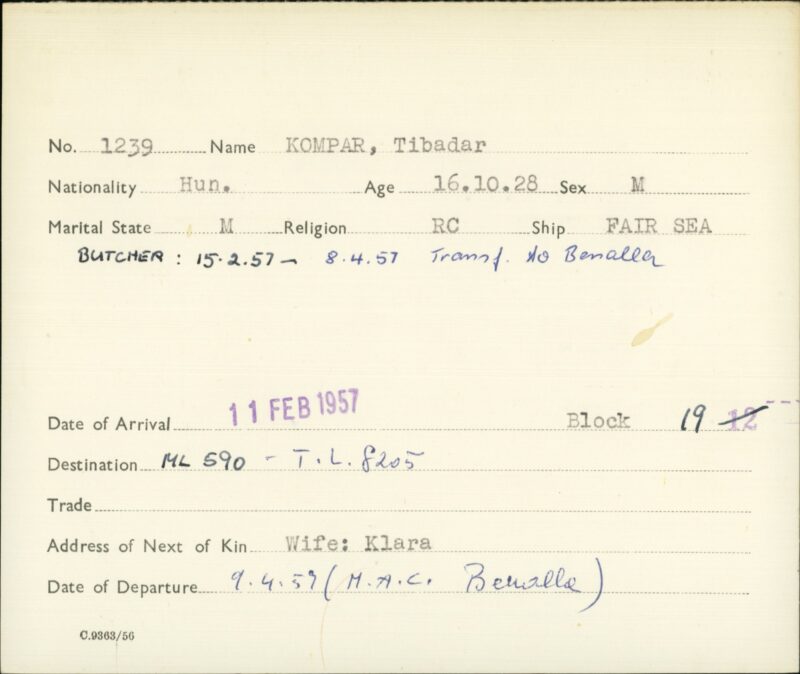 No. 1239 Name KOMPAR, Tibadar
Nationality Hun. Age 16.10.28 Sex M
Marital State M Religion RC Ship FAIR SEA
BUTCHER : 15.2.57 – 8.4.57 Transf. to Benalla
Date of Arrival 11 FEB 1957 Block 19 12
Destination ML 590 - T.L. 8205
Trade
Address of Next of Kin Wife: Klara
Date of Departure 9.4.57 (M.A.C. Benalla)
C.9363/56